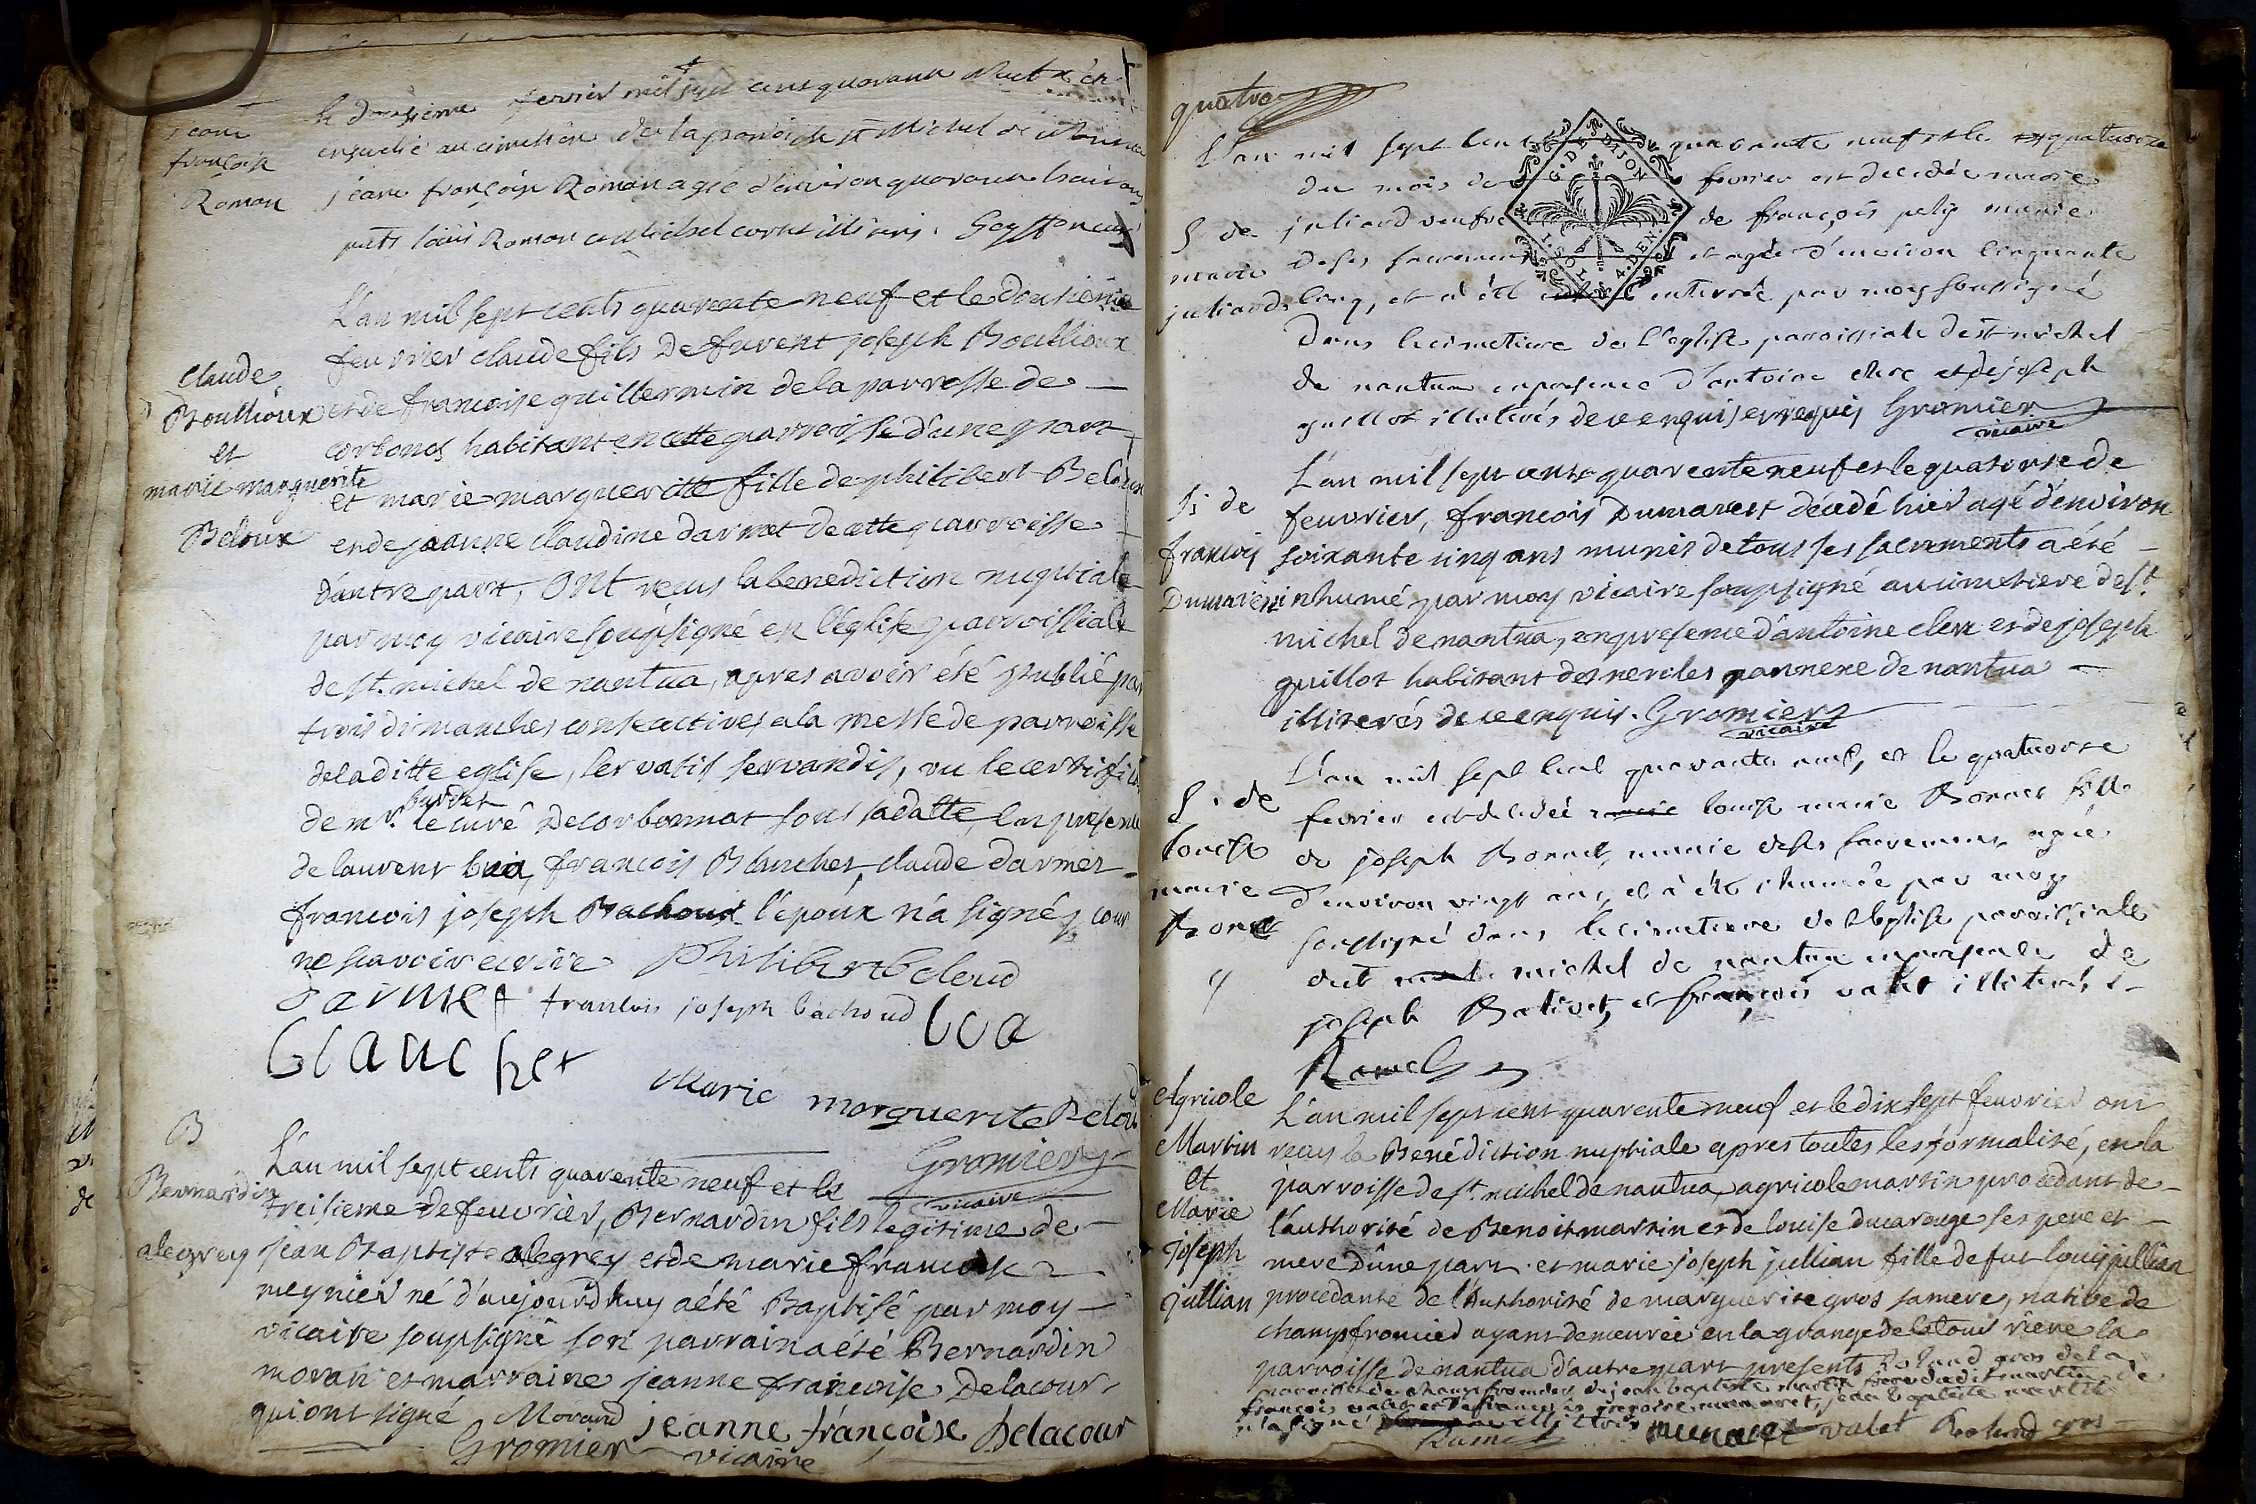 jean
françois
Roman
le douzieme fevrier mil sept cens quarante
ensevelie au cimetiere de la paroisse st Michel de
jean françois Roman agé d'environ quarante huit ans
Louis Roman et Michel cornet illitirés.
Claude
Boullioux
et
marie marguerite
Beloux
L'an mil sept cents quarente neuf et le douzieme
feuvrier claude fils de laurent joseph Boullioux
et de francoise guillermin de la parroisse de
corbonod habitant en cette parroisse d'une part
et marie margueritte fille de philibert Beloux
et de jeanne claudine darmet de cette parroisse
d'autre part, ont recus la benediction nuptiale
par moy vicaire soupsigné en l'église parroissiale
de st. michel de nantua, apres avoir été publié par
trois dimanches consecutives a la messe de parroisse
de la ditte eglise, servatis servandis, vu le certificat
de mr. le curé de corbonnat sous sa datte, en presence
de laurent bua, francois Blanchet, claude darmet
francois joseph Bachoud l'époux n'a signé pour
ne scavoir ecrire philibert beloud
Darmet francois joseph bachoud bua
blanchet
Marie marguerite Beloud
Gromier
vicaire
B
Bernardin
alegrey
L'an mil sept cents quarente neuf et le
treisieme de feuvrier, Bernardin fils legitime de
jean Baptiste alegrey et de marie francoise
meynier né d'aujourdhuy a été Baptisé par moy
vicaire soupsigné son parrain a été Bernardin
moran et marraine jeanne francoise Delacour
qui ont signé Morand jeanne françoise Delacour
Gromier vicaire
quatre
G. DE DIJON
1. SOL 4. DEN.
S de
marie
juliand
L'an mil sept cent quarante neuf et le quatorze
du mois de fevrier est decedée marie
juliand veufve de françois pely munie
de ses sacremens et agée d'environ cinquante
cinq, et a été enterrée par moy soussigné
dans le cimetiere de l'eglise paroissiale de st michel
de nantua en presence d'antoine clerc et de joseph
guillot illitirés de ce enquis et requis Gromier
vicaire
S de
francois
Dumarest
L'an mil sept cents quarente neuf et le quatorse de
feuvrier, francois Dumarest décedé hier agé d'environ
soixante cinq ans munis de tous ses sacrements a été
inhumé par moy vicaire soupsigné au cimetiere de st.
michel de nantua, en presence d'antoine clerc et de joseph
guillot habitant des nerciles pannexe de nantua
illiterés de ce enquis. Gromier
vicaire
S. de
louise
marie
Bonet
L'an mil sept cent quarante neuf, et le quatorze
fevrier est decedée louise marie Bonnet fille
de joseph Bonnet, munie de ses sacremens, agée
d'environ vingt ans, et a été inhumée par moy
soussigné dans le cimetiere de l'eglise paroissiale
de st michel de nantua en presence de
joseph Bativet, et françois valet illiterés
Ramel
Agricole
Martin
et
Marie
joseph
jullian
L'an mil sept cent quarente neuf et le dix sept feuvrier ont
recus la Benédiction nuptiale apres toutes les formalité, en la
parroisse de st. michel de nantua, agricole martin procedant de
l'authorité de Benoit martin et de louise ducarouge ses pere et
mere d'une part. et marie joseph jullian fille de fut louis jullian
procedante de l'authorité de marguerite gros sa mere, native de
champfromied ayant demeurée en la grange de la tour riere la
parroisse de nantua d'autre part presents Roland gros de la
parroisse de champfromier, de jean baptiste martin frere dudit martin, de
n'a signé illiteré munaret valet Roland gros
Ramel